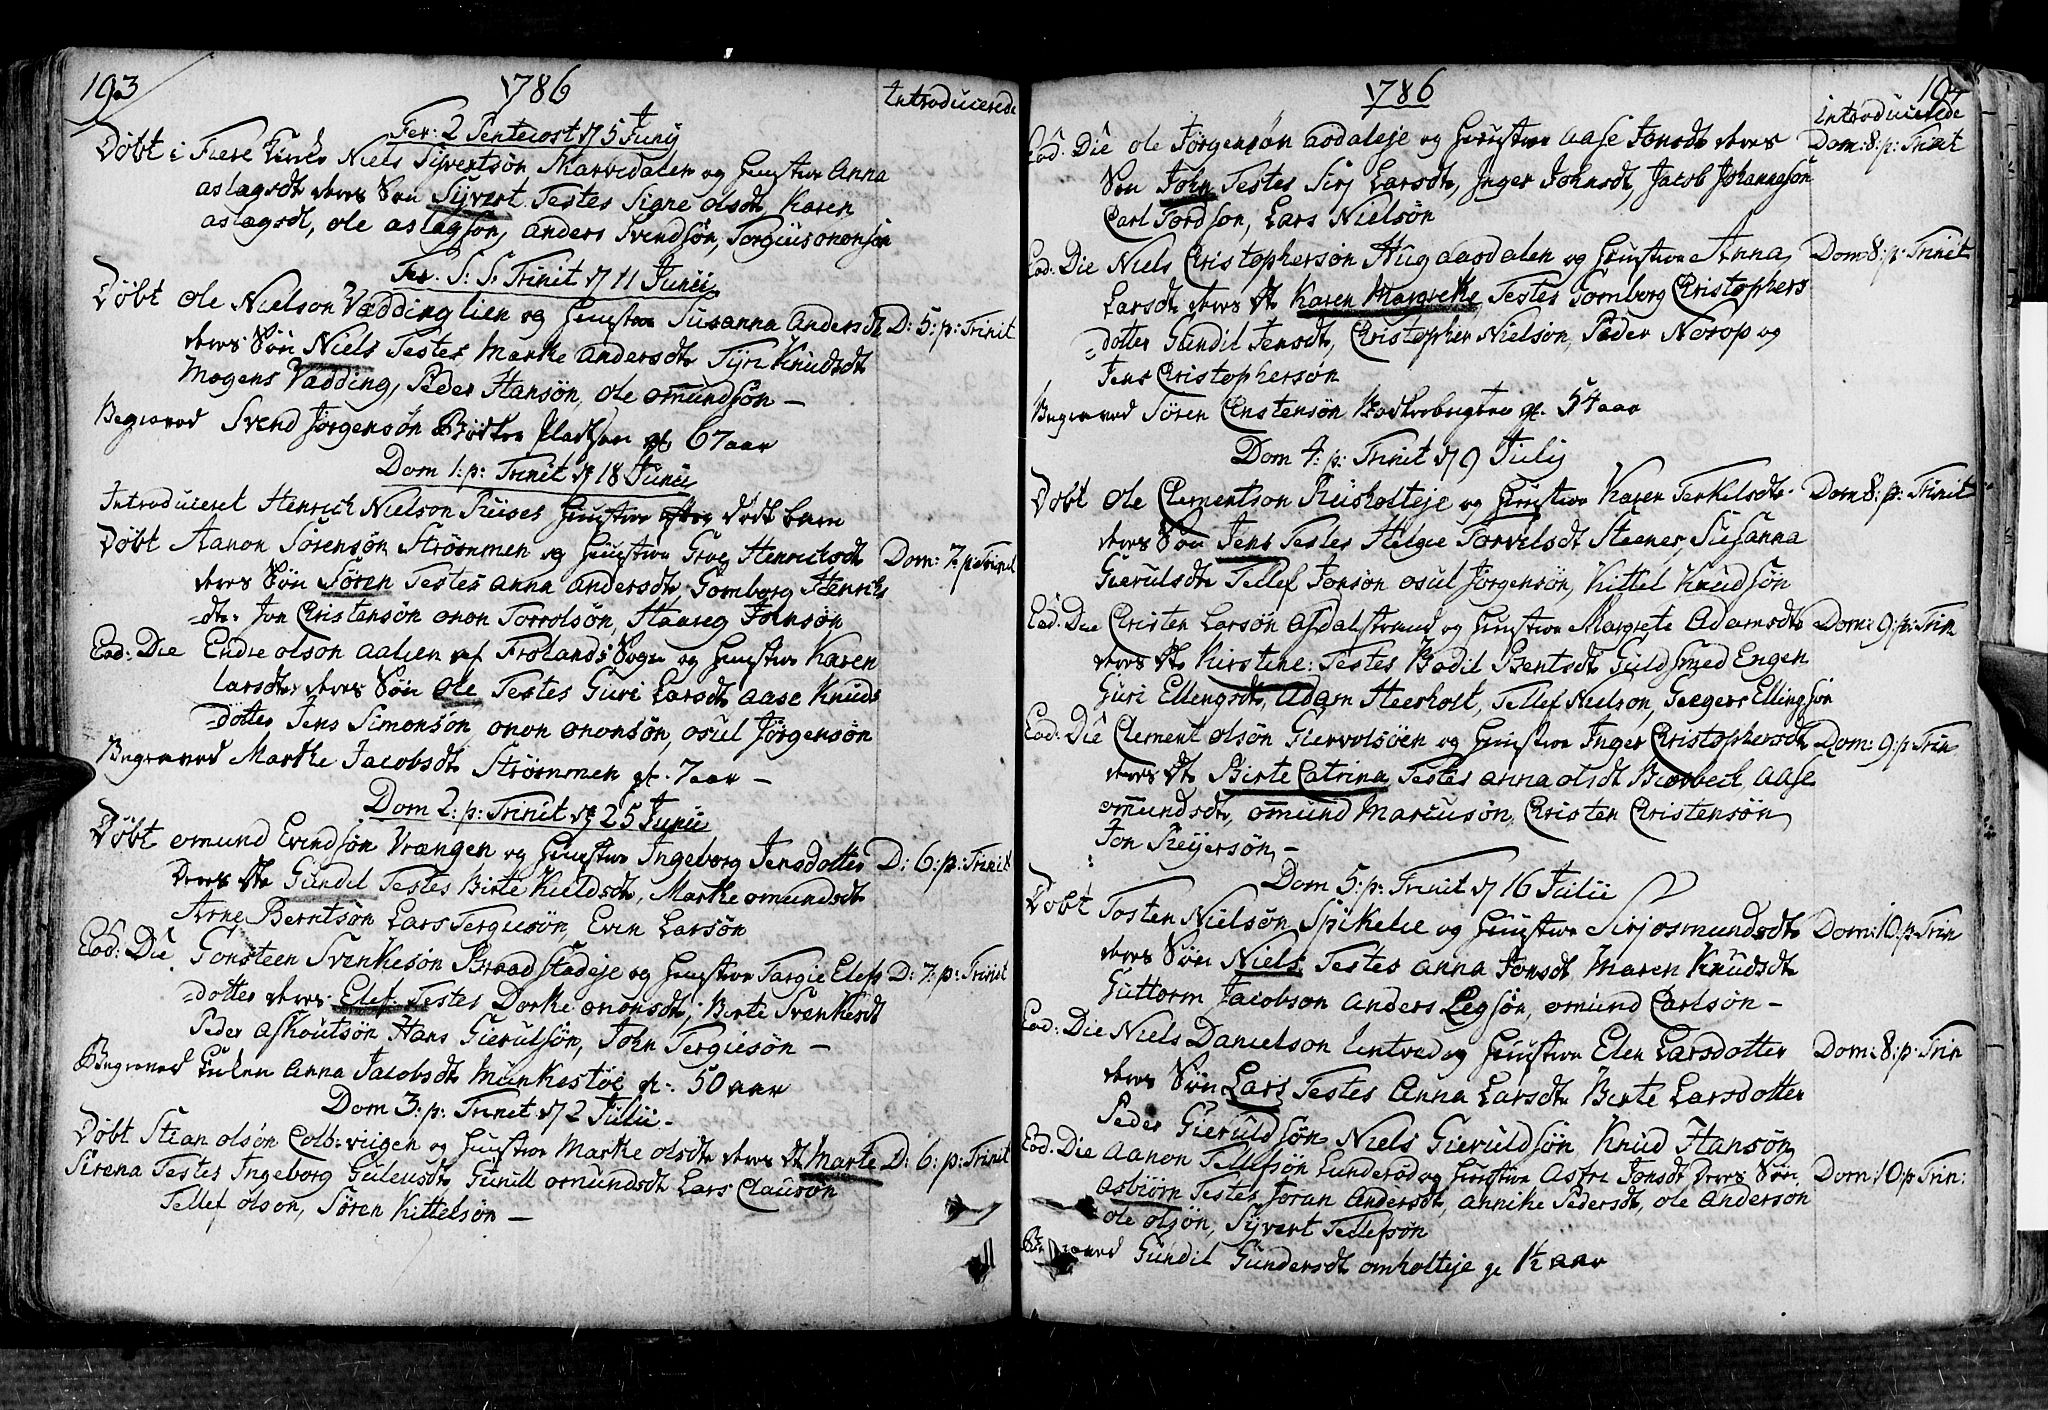 193
1786
Introducerede
Fer: 2 Pentecost d 5 Junij
Døbt i Fiere Kirche Niels Sijvertsøn Marvedalen og Hustroe Anna
aslagsdt deres Søn Sijvert Testes Signe olsdt, Karen
aslagsdt, ole aslagsøn, anders Svendsøn, Torgius ononsøn
Fer. S: S: Trinit d 11 Junii
Døbt ole Nielson Vædding lien og Hustroe Susanna Andersdt D: 5: p: Trinit
deres Søn Niels Testes Marthe andersdt Tijri Knudsdt
Mogens Vædding, Peder Hansøn, ole omundsøn —
Begraved Svend Jørgensøn Bødker Pladsen gl. 67 aar
Dom 1: p: Trinit d 18 Junii
Introduceret Henrich Nielson Ruses Hustroe efter dødt barn
Døbt Aanon Sørensøn Strømmen og Hustroe Groe Henrichsdt Dom: 7: p: Trinit
deres Søn Søren Testes anna andersdt, Gomborg Henrichs
=dt. Jon Christensøn onon Torrolsøn, Haareg Johnsøn
Eod: Die Endre olson aalien af Frolands Sogn og Hustroe Karen
larsdt deres Søn ole Testes Guri Larsdt aase Knuds
=dotter Jens Simonsøn, onon ononsøn, osul Jørgensøn
Begraved Marthe Jacobsdt Strømmen gl. 7 aar —
Dom 2: p: Trinit d 25 Junii
Døbt omund Evindsøn Vrængen og Hustroe Ingeborg Jensdotter D: 6: p: Trinit
deres dtr Gundil Testes Birte Kieldsdt, Marthe omundsdt
Arne Berntsøn Lars Tergiusøn, Even Larsøn
Eod: Die Gonsteen Svenkesøn Braadstadeje og Hustroe Targie Elefs D: 7: p: Trinit
=dotter deres Elef Testes Dorthe ononsdt, Birte Svenkesdt
Peder Askoutsøn Hans Gierulsøn, John Tergiesøn —
Begraved Enken Anna Jacobsdt Munkestøe gl. 50 aar
Dom 3: p: Trinit d 2 Julii
Døbt Stian olsøn Colb:viigen og Hustroe Marthe olsdt deres dt Marte D: 6: p: Trinit
Sirena Testes Ingeborg Gulevsdt Gunill omundsdt Lars Clausøn
Tellef olson, Søren Kittelsøn —
1786
194
introducerede
Eod: Die ole Jørgensøn Aasdaleje og Hustroe aase Jonsdt deres Dom: 8: p: Trinit
Søn John Testes Siri Larsdt, Inger Johnsdt, Jacob Johannesøn
Carl Tordson, Lars Nielsøn
Eod: Die Niels Christophersøn Hug aasdalen og Hustroe Anna Dom: 8: p: Trinit
Larsdt deres dt Karen Margrethe, Testes Gomborg Christophers
=dotter Gundil Jensdt, Christopher Nielsøn, Peder Nerop og
Jens Christophersøn
Begraved Søren Enstensøn gl. 54 aar
Dom 4: p: Trinit d 9 Julij
Døbt ole Clementson Riisholteje og Hustroe Karen Terkelsdt Dom 8: p: Trinit
deres Søn Jens Testes Helgie Torvelsdt Steener, Susanna
Gierulsdt Tellef Jonsøn osul Jørgensøn, Kittel Knudsøn
Eod: Die Christen Larsøn Asdalstrand og Hustroe Margrete Adamsdt Dom: 9: p: Trin
deres dt Kirstine: Testes Bodil Bentsdt Guldsmed Engen
Guri Ellengsdt, Adam Heesholt, Tellef Nielson, Geegers Ellingsøn
Eod: Die Clement olsøn Giervolsøen og Hustroe Inger Christophersdt Dom: 9: p: Trin
deres dt Birte Catrina Testes anna olsdt Biørbeck, aase
omundsdt, omund Marcusøn, Christen Christensøn,
Jon Reijersøn, —
Dom 5: p: Trinit d 16 Julii
Døbt Tosten Nielsøn Spikelie og Hustroe Sirj osmundsdt Dom: 10: p: Trin
deres Søn Niels Testes anna Jonsdt Maren Knudsdt
Guttorm Jacobson Anders Legsøn, omund Carlsøn —
Eod: Die Niels Danielson Lintved og Hustroe Elen Larsdotter Dom: 8: p: Trin
deres Søn Lars Testes Anna Larsdt Birte Larsdotter
Peder Gieruldsøn Niels Gieruldsøn Knud Hansøn
Eod: Die Aanon Tellefsøn Lunderød og Hustroe Astri Jonsdt deres Søn Dom: 10: p Trin:
asbiørn Testes Joran Andersdt, annike Pedersdt, ole Anderson
ole olsøn, Sijvert Tellefsøn
Begraved Gundil Gundersdt omholteje gl 1½ aar